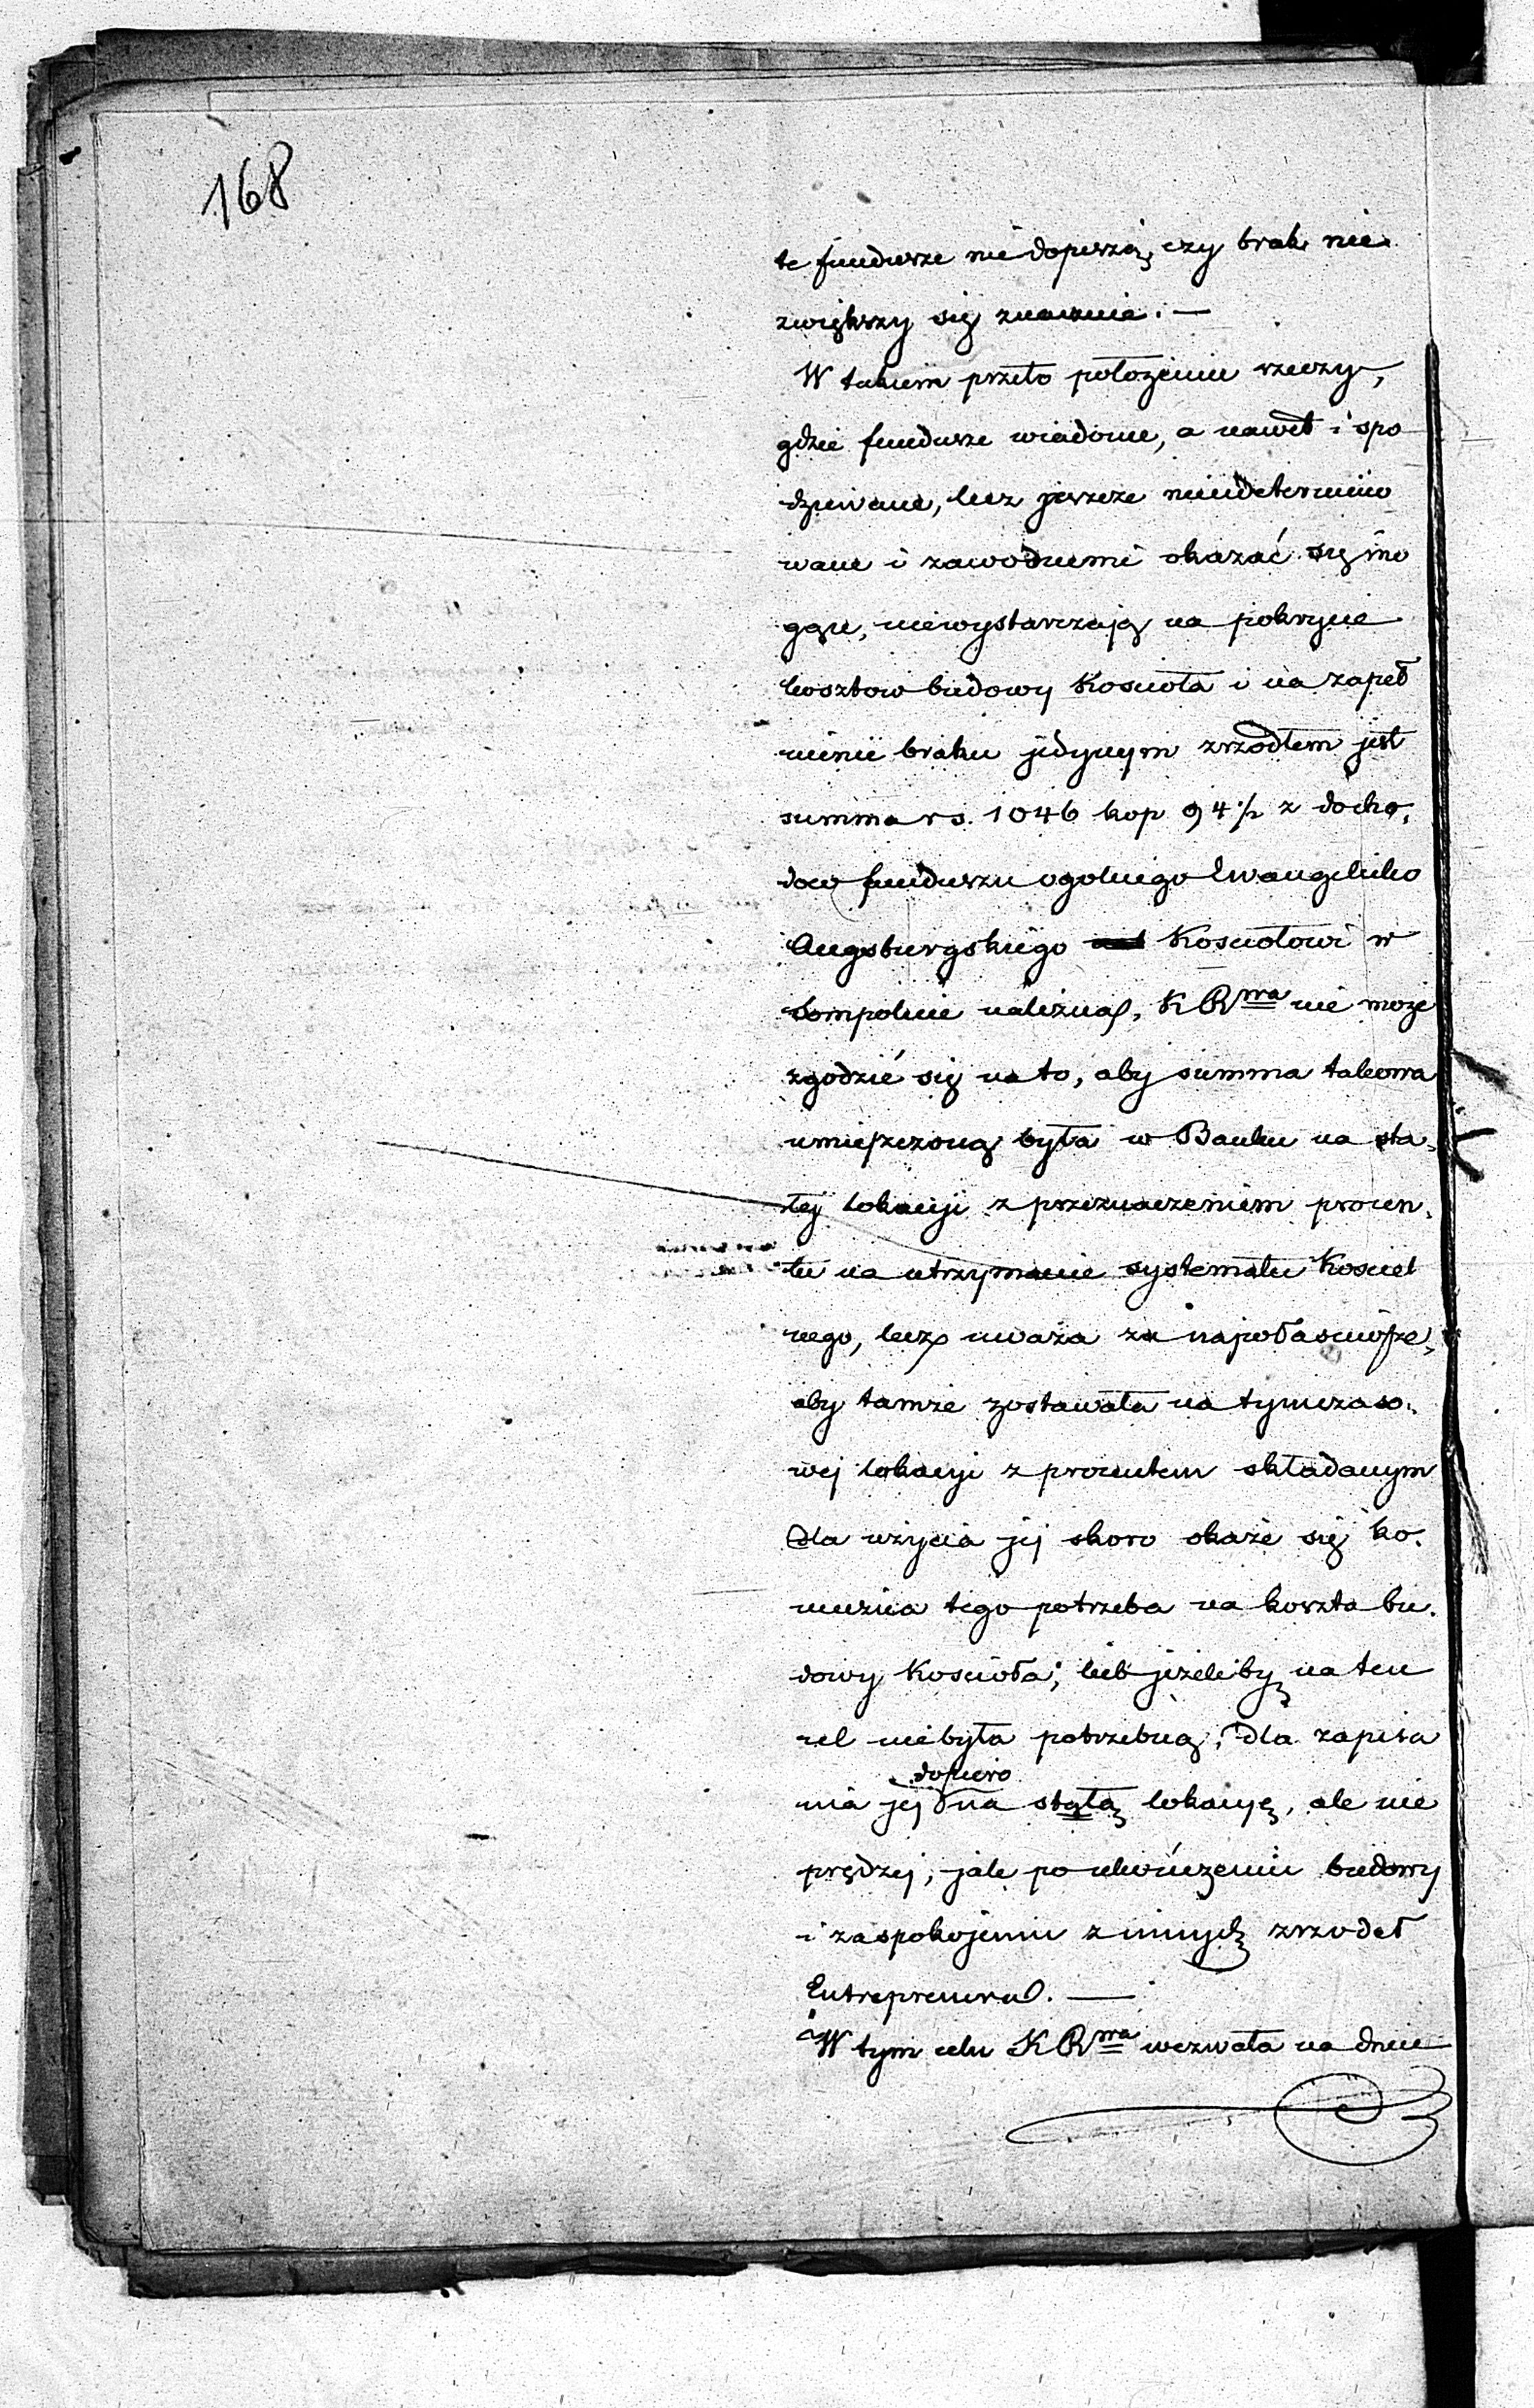 168
te fundusze nie dopiszą, czy brak nie
zwiększy się znacznie. —
W takiem przeto położeniu rzeczy,
gdzie fundusze wiadome, a nawet i spo
dziewane, lecz jeszcze niezdetermino
wane i zawodnemi okazać się mo
gące, niewystarczają na pokrycie
kosztow budowy Kościoła i na zapeł
nienie braku jedynym zrzodłem jest
summa rs. 1046 kop 94 ½ z docho,
dow funduszu ogolnego Ewangelicko
Augsburgskiego Kościołowi w
Sompolnie należna, K R wa nie może
zgodzić się na to, aby summa takowa
umieszczoną była w Banku na sta,
łej lokacyi z przeznaczeniem procen,
tu na utrzymanie systematu Kościel
nego, lecz uważa za najwłaściwsze,
aby tamże zostawała na tymczaso,
wej lokacyi z procentem składanym
dla użycia jej skoro okaże się ko,
nieczna tego potrzeba na koszta bu,
dowy Kościoła; lub jeżeliby na ten
cel niebyła potrzebną, dla zapisa
dopiero
nia jej na stałą lokacyę, ale nie
prędzej, jak po ukończeniu budowy
i zaspokojeniu z innych zrzodeł
Entreprenera. —
W tym celu K R wa wezwała na dniu